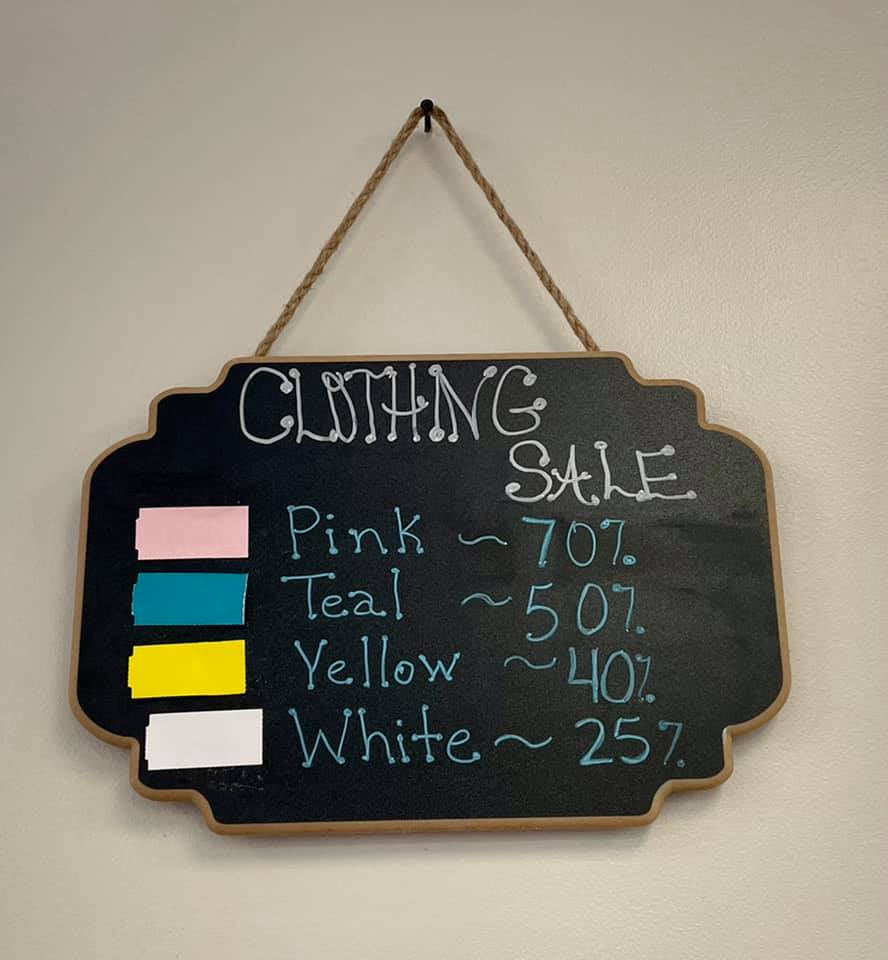 CLOTHNG
SALE
Pink ~ 70%
Teal ~ 50%
Yellow ~ 40%
White ~ 25%